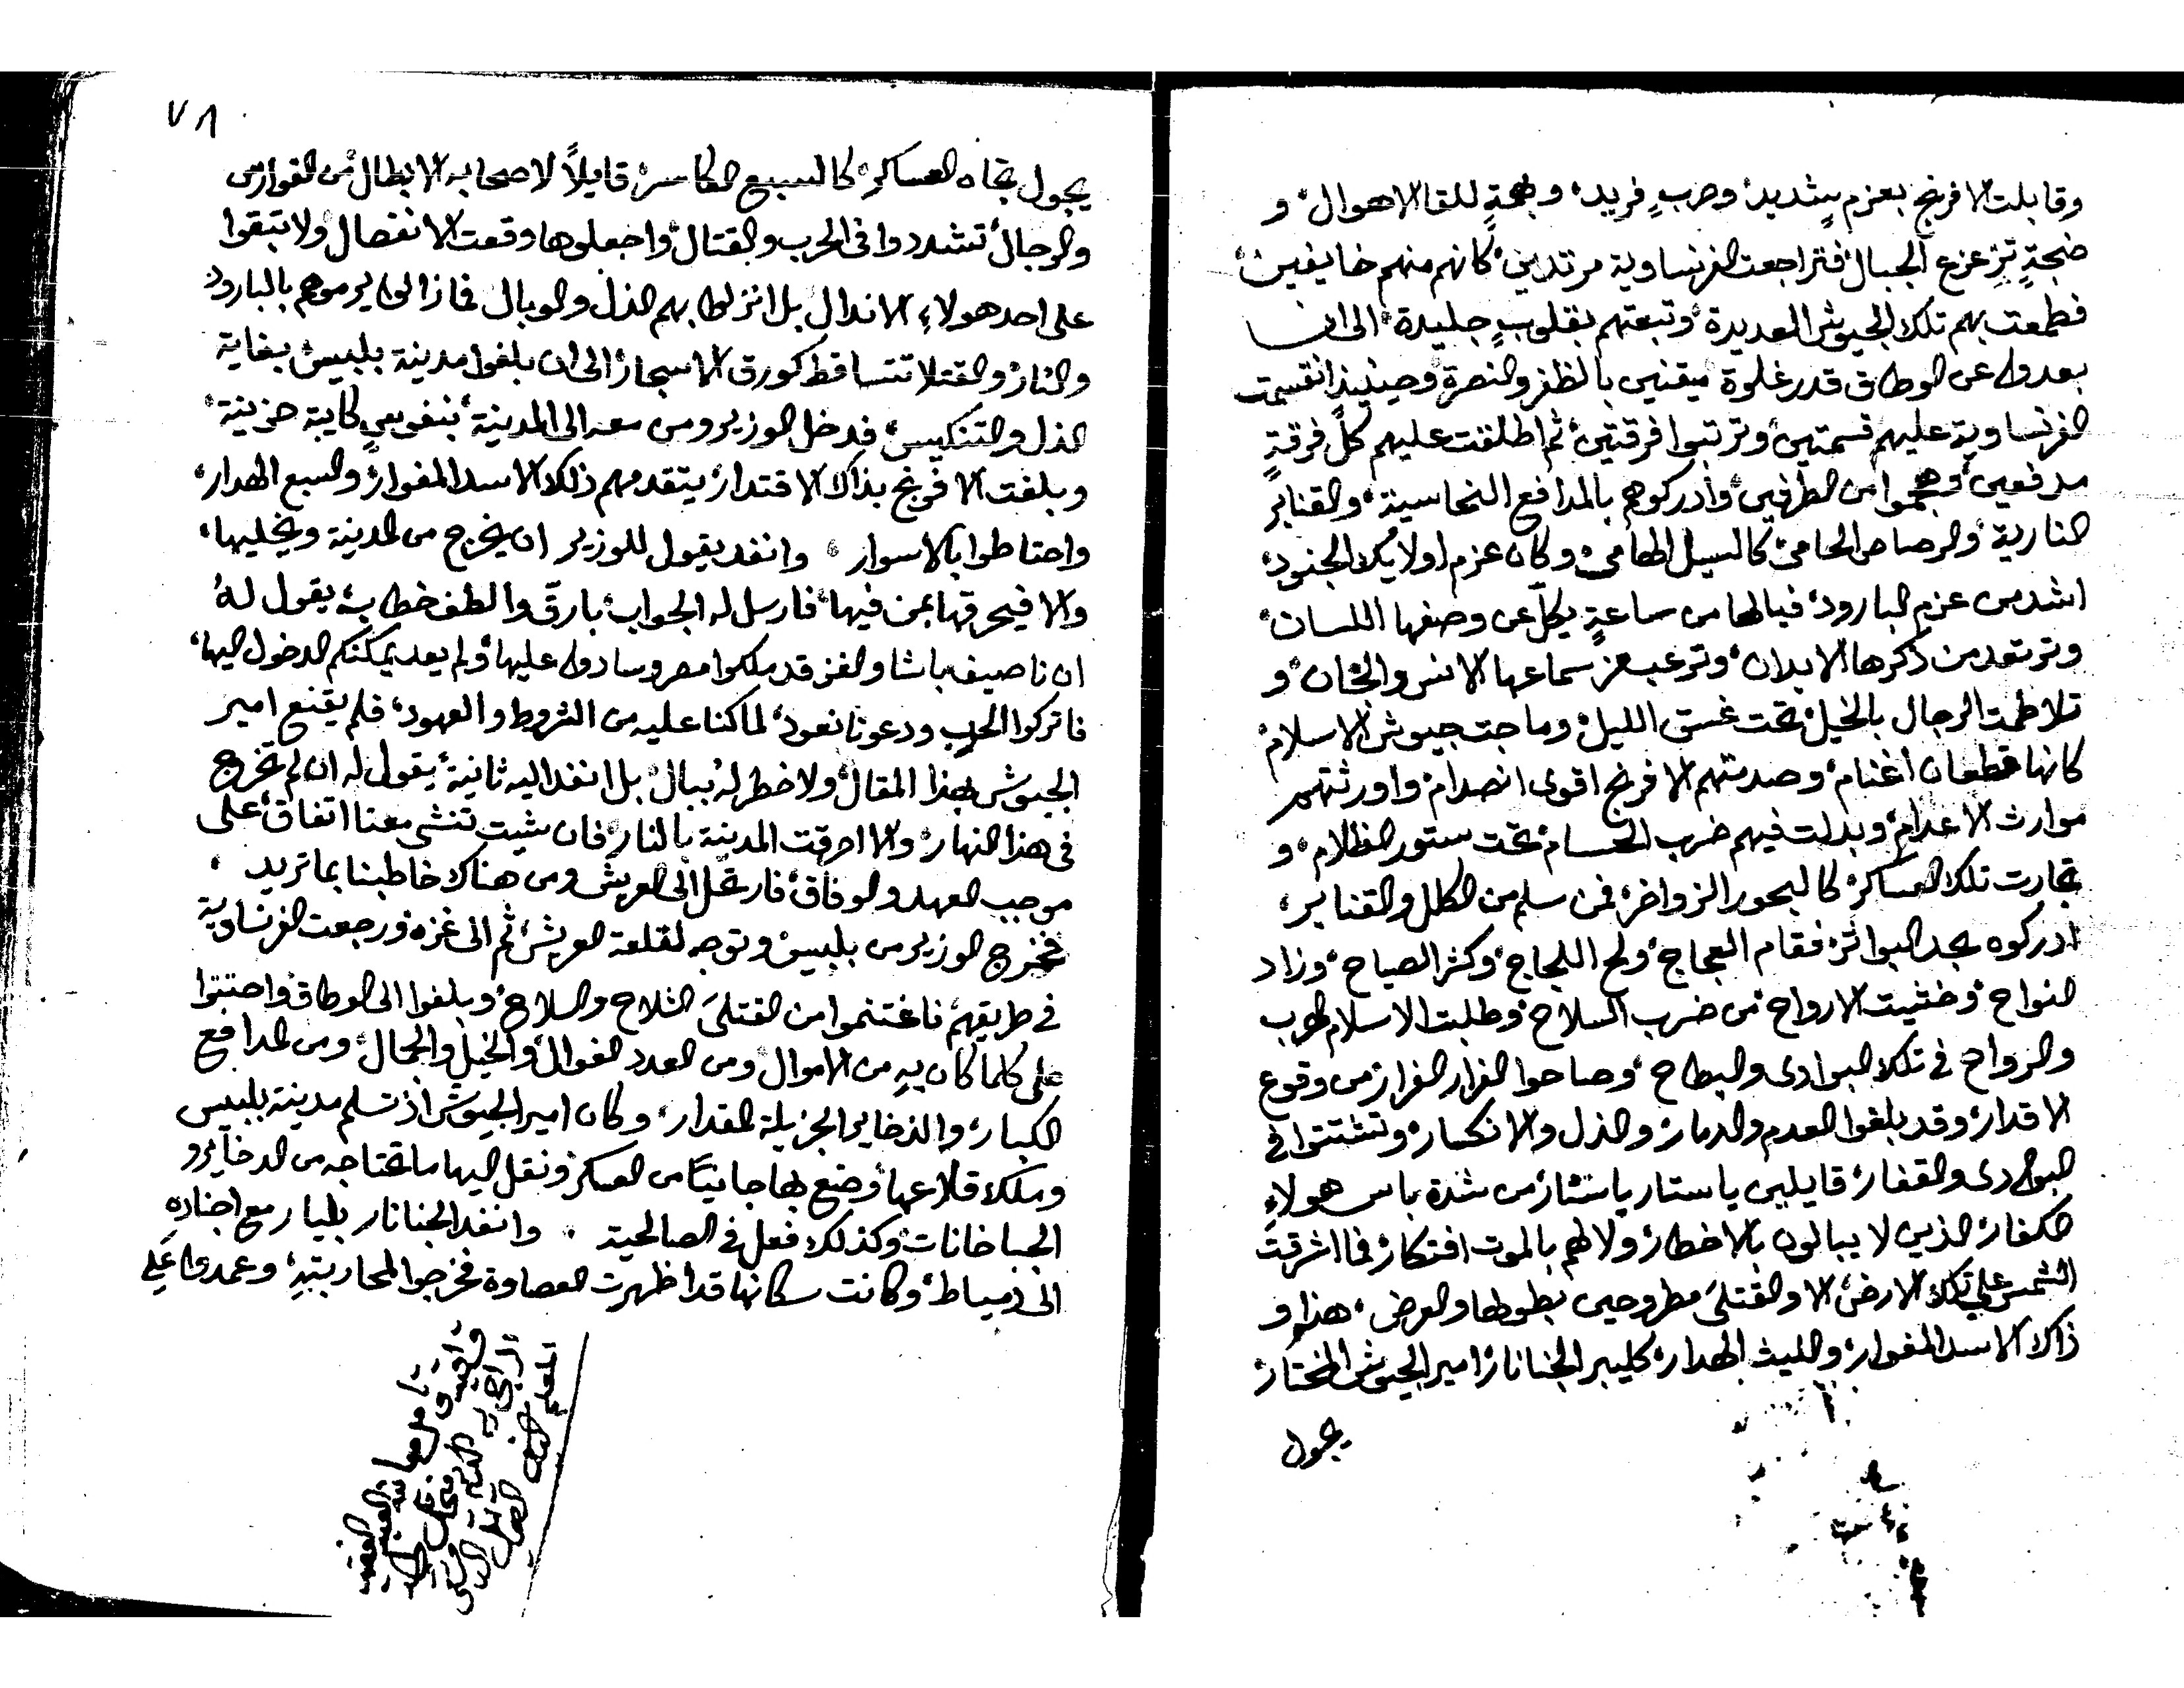 وقابلت الافرنج بعزم شديد، وحرب فريد، وهمةٍ للقا الاهوال، و
ضجةٍ تزعزع الجبال، فتراجعت الفرنساوية مرتدين، كانهم منهم خايفين،
فطمعت بهم تلك الجيوش العديدة، وتبعتهم بقلوبٍ جليدة، الى ان
بعدوا عن الوطاق قدر غلوة ميقنين بالظفر والنصرة، وحينيذٍ انقسمت
الفرنساوية عليهم قسمتين، وترتبوا فرقتين، ثم اطلقت عليهم كل فرقةٍ
مدفعين، وهجموا من الطرفين، وادركوهم بالمدافع النحاسية، والقنابر
النارية، والرصاص الحامى، كالسيل الطامى، وكان عزم اولايك الجنود،
اشد من عزم البارود، فيالها من ساعةٍ يكلّ عن وصفها اللسان،
وترتعد من ذكرها الابدان، وترعب عن سماعها الانس والجان، و
تلاطمت الرجال بالخيل، تحت غسق الليل، وماجت جيوش الاسلام،
كانها قطعان اغنام، وصدمتهم الافرنج اقوى انصدام، واورثتهم
موارث الاعدام، وبدلت فيهم ضرب الحسام، تحت ستور الظلام، و
تجارت تلك العساكر، كالبحور الزواخر، فمن سلم من الكلل والقنابر،
ادركوه بحد البواتر، فقام العجاج، ولج اللجاج، وكثر الصياح، وزاد
النواح، وخشيت الارواح، من ضرب السلاح، وطلبت الاسلام الهرب
والرواح في تلك البوادى والبطاح، وصاحوا الفرار الفرار، من وقوع
الاقدار، وقد بلغوا العدم والدمار، والذل والانكسار، وتشتتوا في
البوادى والقفار، قايلين ياستار ياستار، من شدة باس هولاءِ
الكفار، الذين لا يبالون بالاخطار، ولا لهم بالموت افتكار، فما اشرقت
الشمس على تلك الارض، الا والقتلى مطروحين بطولها والعرض، هذا و
ذاك الاسد المغوار، والليث الهدار، كليبر الجنانار، امير الجيوش المختار،
يجول
٧٨
يجول تجاه العساكر، كالسبع الكاسر، قايلاً لاصحابه الابطال، من الفوارس
والرجال، تشددوا في الحرب والقتال، واجعلوها وقعت الانفصال، ولا تبقوا
على احد هولاءِ الاندال بل انزلوا بهم الذل والوبال، فمازالوا يرموهم بالبارود
والنار، والقتلا تتساقط كورق الاشجار، الى ان بلغوا مدينة بلبيس، بغاية
الذل والتنكيس، فدخل الوزير ومن معه الى المدينة، بنفوسٍ كايبة حزينة،
وبلغت الافرنج بذاك الاقتدار، يتقدمهم ذلك الاسد المغوار، والسبع الهدار،
واحتاطوا بالاسوار، وانفد يقول للوزير ان يخرج من المدينة ويخليها،
والا فيحرقها بمن فيها، فارسل له الجواب، بارقّ والطف خطاب، يقول لهُ
ان ناصيف باشا والغز قد ملكوا مصر وسادوا عليها، ولم يعد يمكنكم الدخول اليها،
فاتركوا الحرب ودعونا نعود، لما كنا عليه من الشروط والعهود، فلم يقنع امير
الجيوش بهذا المقال، ولا خطر لهُ ببال، بل انفد اليه ثانية، يقول له ان لم تخرج
في هذا النهار، والا احرقت المدينة بالنار، فان شيت تنشى معنا اتفاق، على
موجب العهد والوفاق، فارتحل الى العريش ومن هناك خاطبنا بما تريد،
فخرج الوزير من بلبيس، وتوجه لقلعة العريش، ثم الى غزه، ورجعت الفرنساوية
في طريقهم، فاغتنموا من القتلى الثلاح والسلاح، وبلغوا الى الوطاق، واحتتوا
على كلما كان بهِ من الاموال، ومن العدد الغوال، والخيل والجمال، ومن المدافع
الكبار، والذخاير الجزيلة المقدار، وكان امير الجيوش اذ تسلم مدينة بلبيس
وملك قلاعها، وضع بها جانباً من العسكر، ونقل اليها ما تحتاجه من الدخاير، و
الجباخانات، وكذلك فعل في الصالحية، وانفد الجنانار بليار مع اجناده
الى دمياط، وكانت سكانها قد اظهرت العصاوة فخرجوا لمحاربتهِ، وعمدوا على